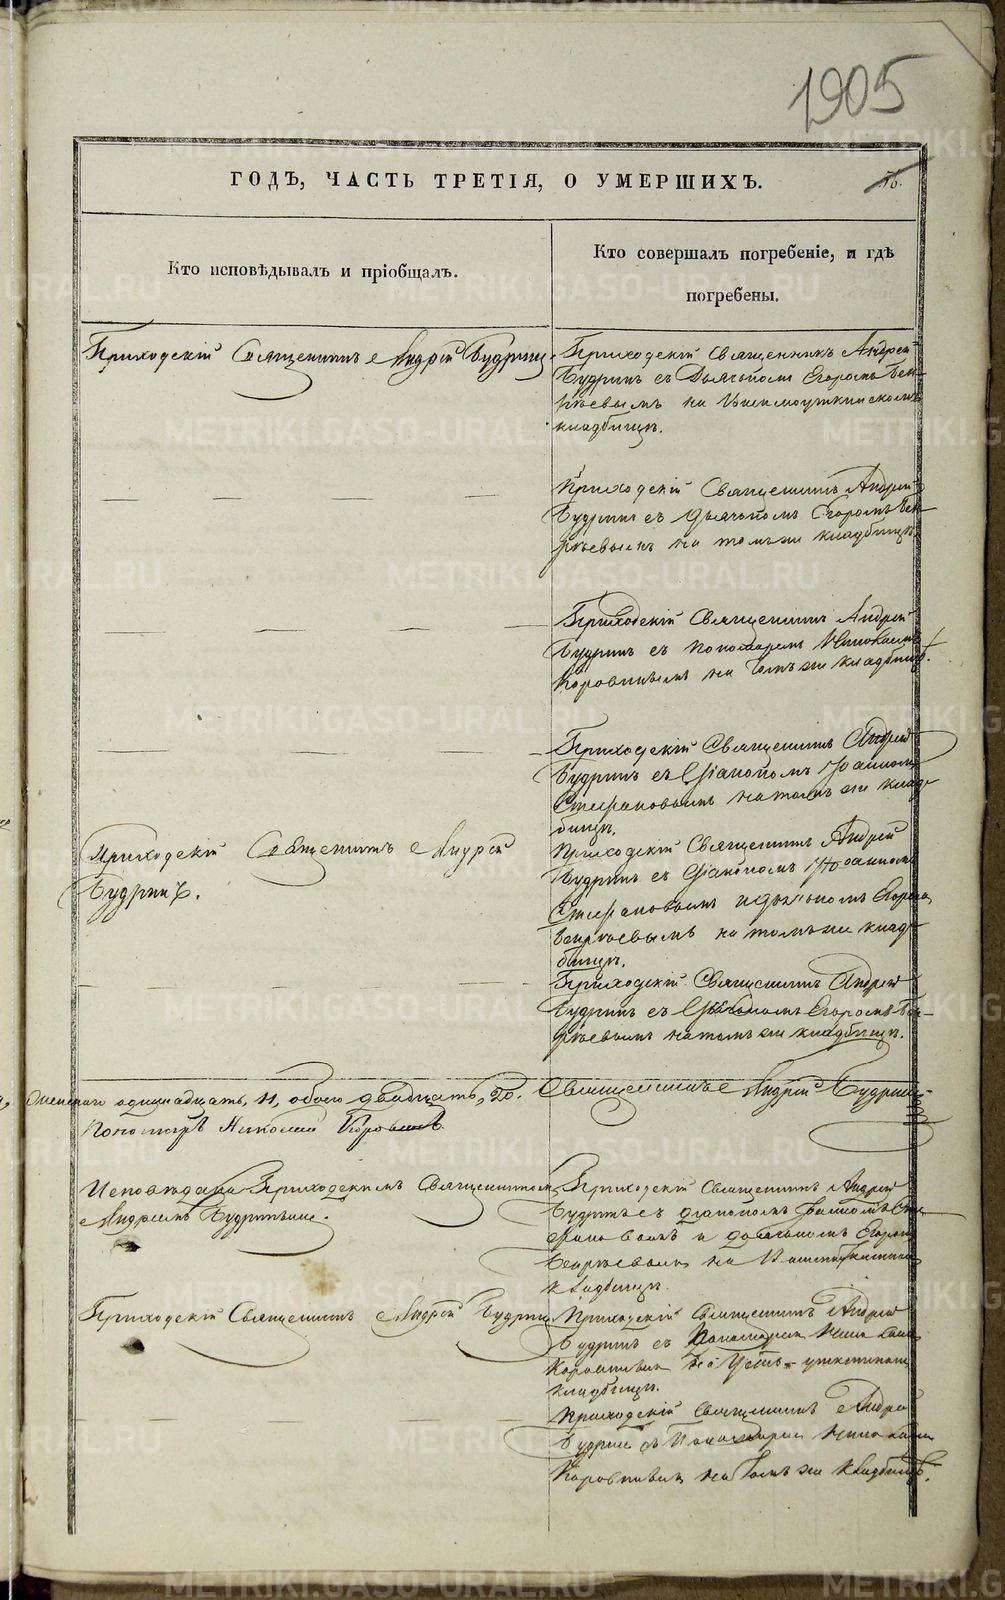 1905
ГОДЪ, ЧАСТЬ ТРЕТІЯ, О УМЕРШИХЪ.
Кто исповѣдывалъ и пріобщалъ.
Кто совершалъ погребеніе, и гдѣ
погребены.
Приходскій Священникъ Андрей Будринъ
Приходскій Священникъ Андрей
Будринъ съ Дьячкомъ Егоромъ
на
кладбищѣ.
Приходскій Священникъ Андрей
Будринъ съ дьячкомъ Егоромъ
на томъ же кладбищѣ.
Приходскій Священникъ Андрей
Будринъ съ пономаремъ Николаемъ
Коровинымъ на томъ же кладбищѣ.
Приходскій Священникъ Андрей
Будринъ съ Діакономъ Іоанномъ
Стефановымъ на томъ же клад-
бищѣ.
Приходскій Священникъ Андрей
Будринъ.
Приходскій Священникъ Андрей
Будринъ съ Діакономъ Іоанномъ
Стефановымъ и дьячкомъ Егоромъ
на томъ же клад-
бищѣ.
Приходскій Священникъ Андрей
Будринъ съ Егоромъ
на томъ же кладбищѣ.
женскаго одинадцать, 11, обоего двадцать, 20. Священникъ Андрей Будринъ
Пономарь Николай Коровинъ
Исповѣданъ Приходскимъ Священникомъ
Андреемъ Будринымъ.
Приходскій Священникъ Андрей
Будринъ съ діакономъ
и дьячкомъ Егоромъ
на
кладбищѣ.
Приходскій Священникъ Андрей Будринъ
Приходскій Священникъ Андрей
Будринъ съ Пономаремъ Николаемъ
Коровинымъ на Усть-уткинскомъ
кладбищѣ.
Приходскій Священникъ Андрей
Будринъ съ Пономаремъ Николаемъ
Коровинымъ на томъ же кладбищѣ.
METRIKI.GASO-URAL.RU